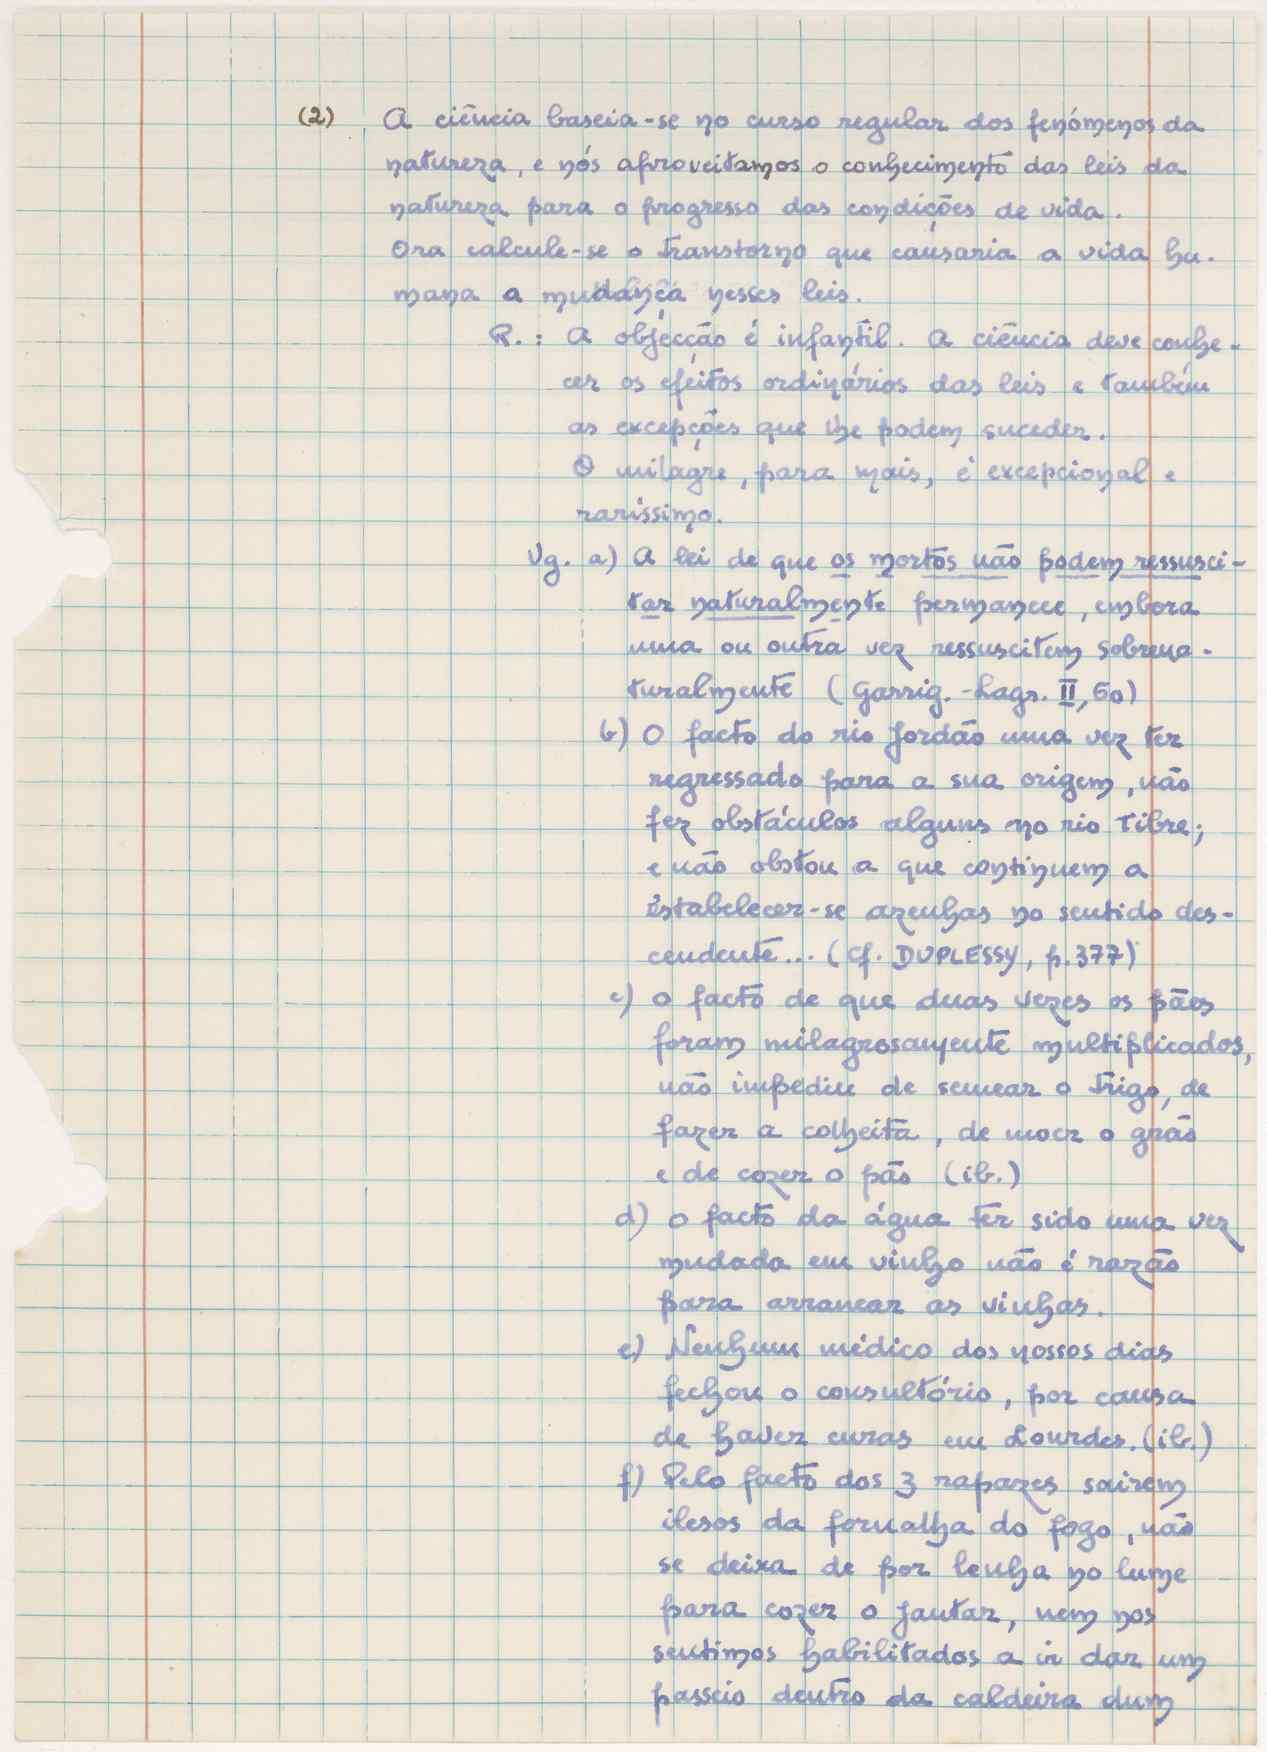 (2) A ciência baseia-se no curso regular dos fenómenos da
natureza, e nós aproveitamos o conhecimento das leis da
natureza para o progresso das condições de vida.
Ora calcule-se o transtorno que causaria a vida hu-
mana a mudança nesses leis.
R.: A objecção é infantil. A ciência deve conhe-
cer os efeitos ordinários das leis e também
as excepções que lhe podem suceder.
O milagre, para mais, é excepcional e
raríssimo.
Vg. a) A lei de que os mortos não podem ressusci-
tar naturalmente permanece, embora
uma ou outra vez ressuscitem sobrena-
turalmente (Garrig.-Lagr. II, 60)
b) O facto do rio Jordão uma vez ter
regressado para a sua origem, não
fez obstáculos alguns no rio Tibre;
e não obstou a que continuem a
estabelecer-se azenhas no sentido des-
cendente... (cf. DUPLESSY, p. 377)
c) O facto de que duas vezes os pães
foram milagrosamente multiplicados,
não impediu de semear o trigo, de
fazer a colheita, de moer o grão
e de cozer o pão (ib.)
d) O facto da água ter sido uma vez
mudada em vinho não é razão
para arrancar as vinhas.
e) Nenhum médico dos nossos dias
fechou o consultório, por causa
de haver curas em Lourdes. (ib.)
f) Pelo facto dos 3 rapazes sairem
ilesos da fornalha do fogo, não
se deixa de por lenha no lume
para cozer o jantar, nem nos
sentimos habilitados a ir dar um
passeio dentro da caldeira dum